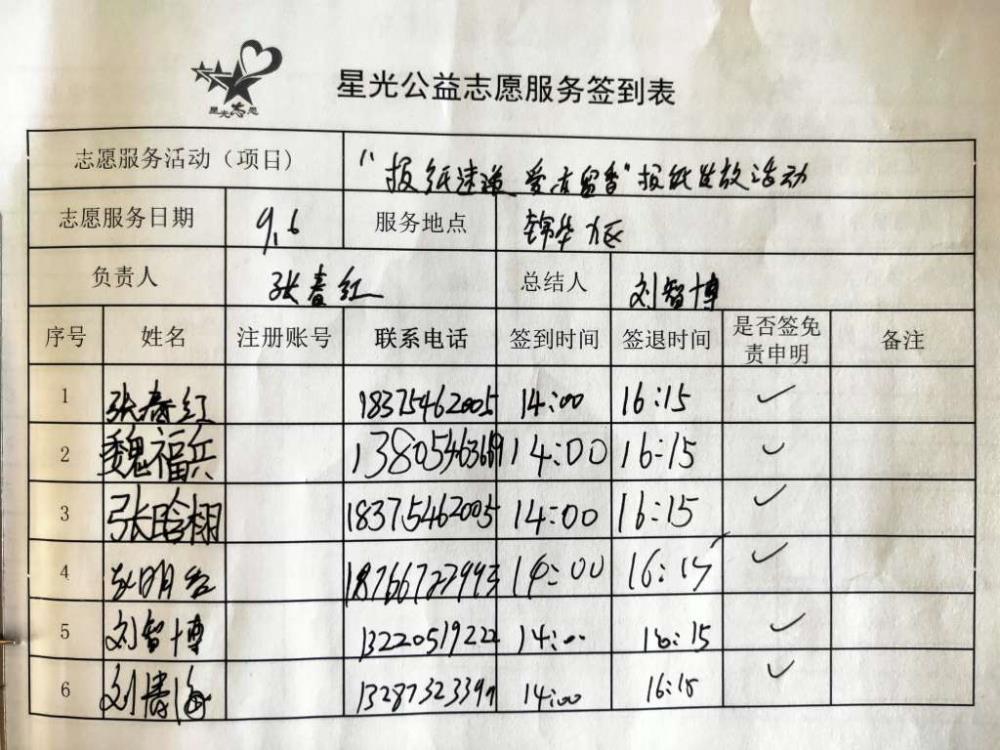 星光志愿
星光公益志愿服务签到表
志愿服务活动（项目） "报纸速递 爱点留香"报纸发放活动
志愿服务日期 9.6 服务地点 锦华方区
负责人 张春红 总结人 刘智博
序号 姓名 注册账号 联系电话 签到时间 签退时间 是否签免责申明 备注
1 张春红 18375462005 14:00 16:15 ✓
2 魏福兵 14:00 16:15 ✓
3 张晗栩 18375462005 14:00 16:15 ✓
4 14:00 16:15 ✓
5 刘智博 13220519222 14:00 16:15 ✓
6 刘 14:00 16:15 ✓